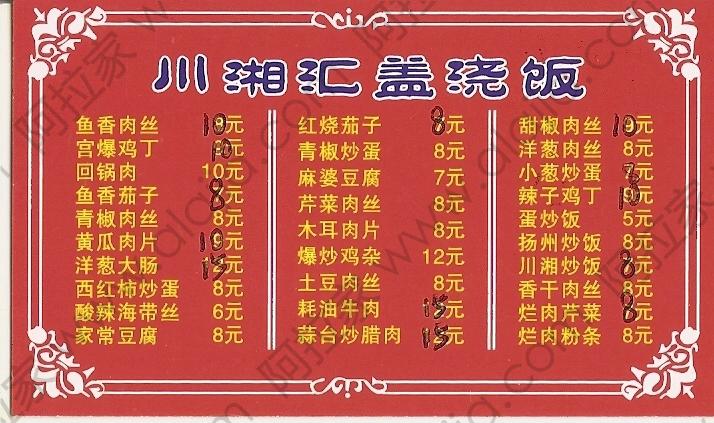 川湘汇盖浇饭
鱼香肉丝 10元
宫爆鸡丁 10元
回锅肉 10元
鱼香茄子 8元
青椒肉丝 8元
黄瓜肉片 10元
洋葱大肠 15元
西红柿炒蛋 8元
酸辣海带丝 6元
家常豆腐 8元
红烧茄子 8元
青椒炒蛋 8元
麻婆豆腐 7元
芹菜肉丝 8元
木耳肉片 8元
爆炒鸡杂 12元
土豆肉丝 8元
耗油牛肉 15元
蒜台炒腊肉 15元
甜椒肉丝 10元
洋葱肉丝 8元
小葱炒蛋 元
辣子鸡丁 10元
蛋炒饭 5元
扬州炒饭 8元
川湘炒饭 8元
香干肉丝 8元
烂肉芹菜 8元
烂肉粉条 8元
阿拉家 www.alajia.com